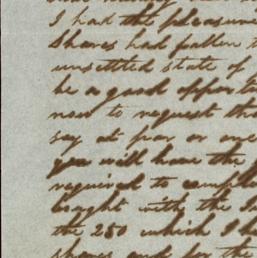 I had the pleasure
Shares had fallen t
unsettled state of
be a good opportu
now to request tha
say at par or one
you will have the
required to complet
bought with the
the 250 which I h
shares and for the